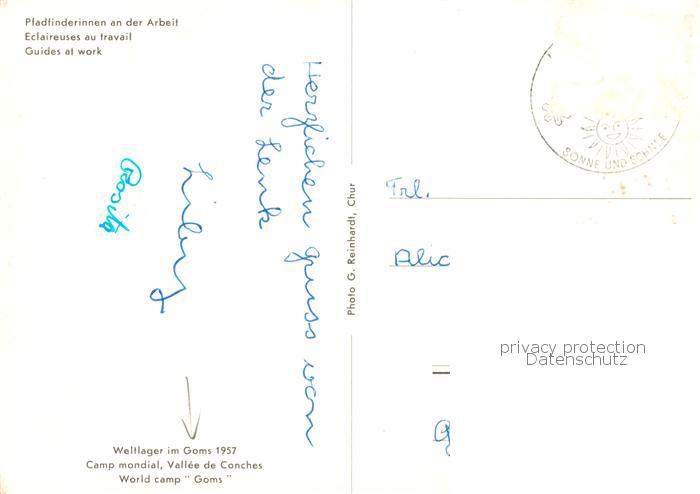 Pfadfinderinnen an der Arbeit
Eclaireuses au travail
Guides at work
Herzlichen gruss von
der Lenk
Rosita
Weltlager im Goms 1957
Camp mondial, Vallée de Conches
World camp " Goms "
Photo G. Reinhardt, Chur
SONNE UND SCHNEE
Frl.
Alic
privacy protection
Datenschutz